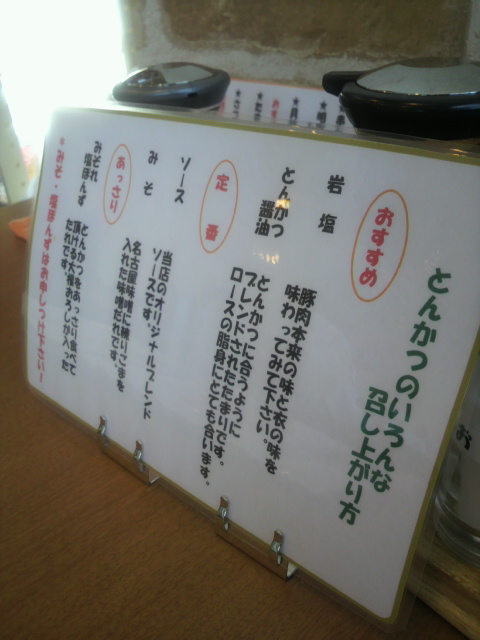 とんかつのいろんな
召し上がり方
おすすめ
岩塩
豚肉本来の味と衣の味を
味わってみて下さい。
とんかつ
醤油
とんかつに合うように
ブレンドされたたまりです。
ロースの脂身にとても合います。
定番
ソース
当店のオリジナルブレンド
ソースです。
みそ
名古屋味噌に練りごまを
入れた味噌だれです。
あっさり
みぞれ
塩ぽんず
とんかつをあっさり食べて
頂ける大根おろしが入った
たれです。
*みそ・塩ぽんずはお申しつけ下さいー
お